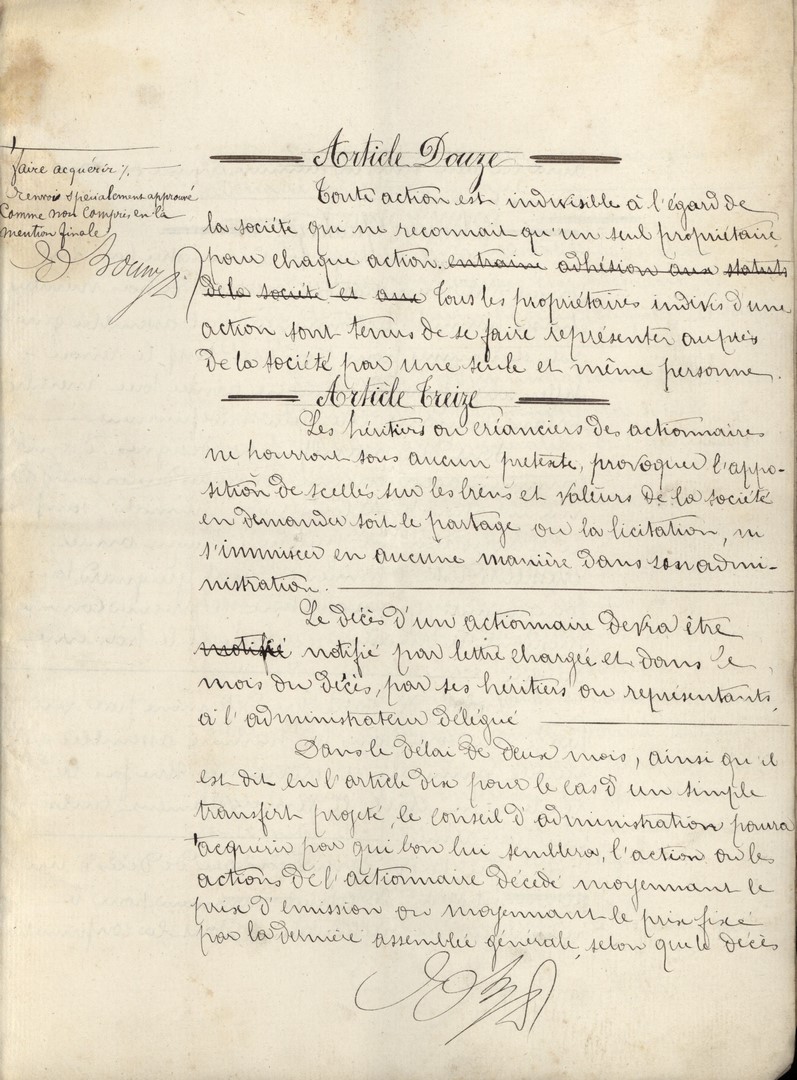 faire acquérir ./.
renvoi spécialement approuvé
Comme non compris en la
mention finale
Article Douze
Toute action est indivisible à l'égard de
la société qui ne reconnait qu'un seul propriétaire
pour chaque action. entraine adhésion aux statuts
de la société et aux Tous les propriétaires indivis d'une
action sont tenus de se faire représenter auprès
de la société par une seule et même personne.
Article Treize
Les héritiers ou créanciers des actionnaires
ne pourront sous aucun prétexte, provoquer l'appo-
sition de scellés sur les biens et valeurs de la société
en demander soit le partage ou la licitation, ni
s'immiscer en aucune manière dans son admi-
nistration.
Le décès d'un actionnaire devra être
notifié notifié par lettre chargée et dans le
mois du décès, par ses héritiers ou représentants,
à l'administrateur délégué
Dans le délai de deux mois, ainsi qu'il
est dit en l'article dix pour le cas d'un simple
transfert projeté, le conseil d'administration poura
acquérir par qui bon lui semblera, l'action ou les
actions de l'actionnaire décédé moyennant le
prix d'émission ou moyennant le prix fixé
par la dernière assemblée générale, selon que le décès